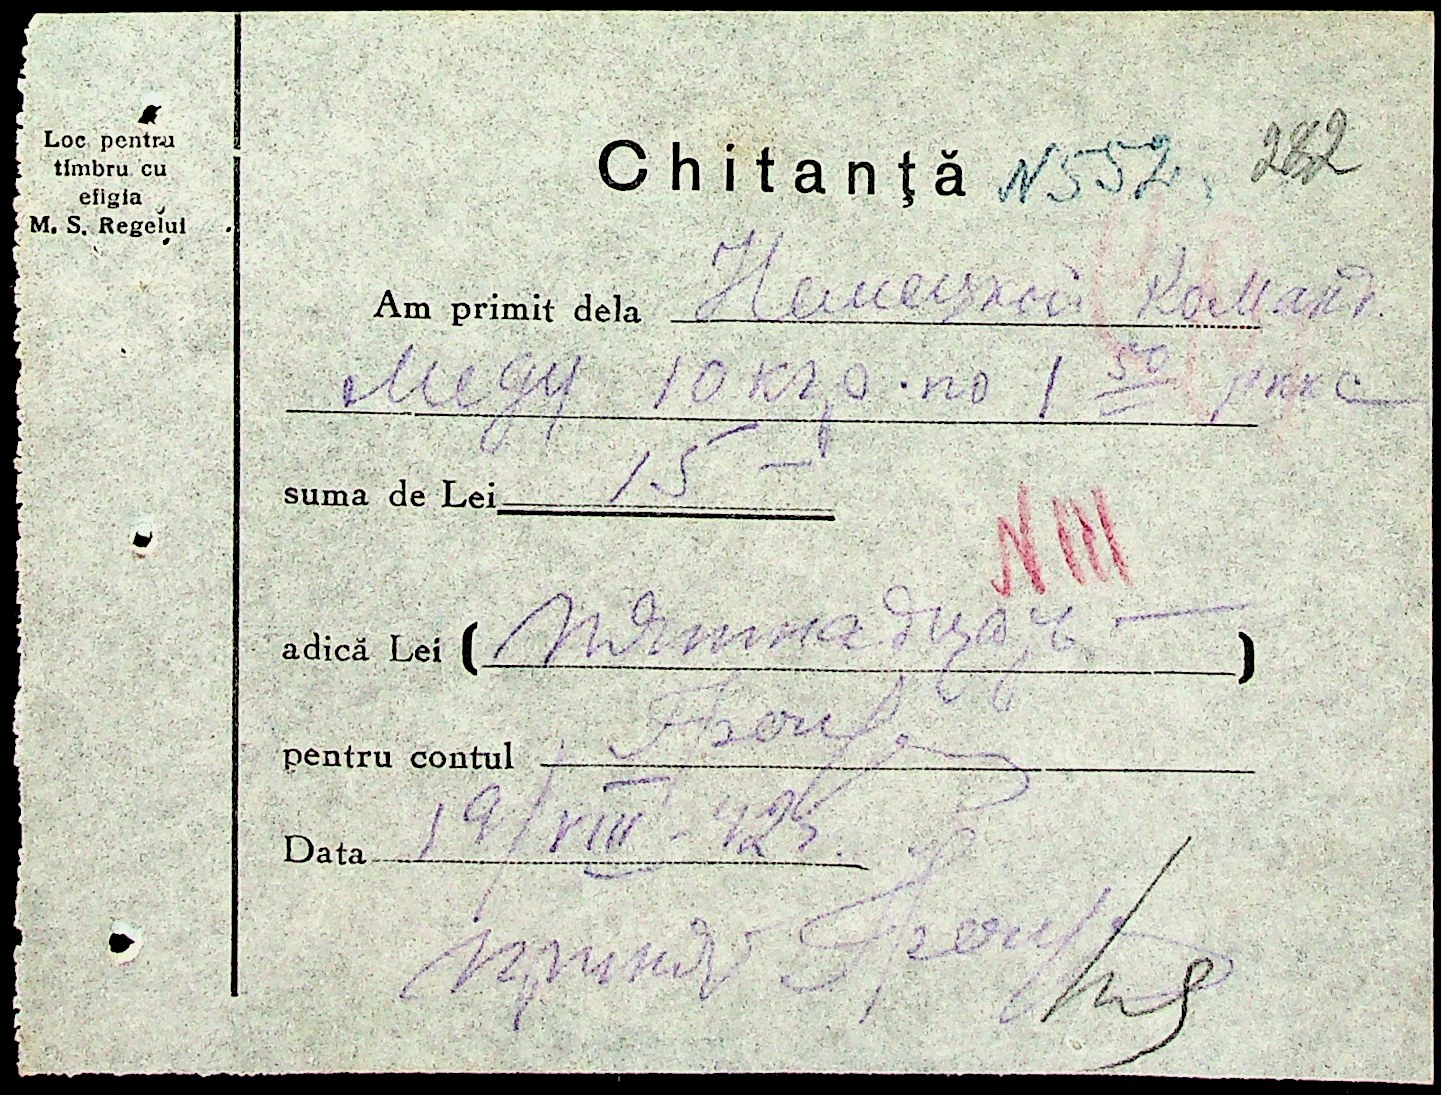 Loc pentru
timbru cu
efigia
M. S. Regelui
Chitanţă N552. 282
Am primit dela Немецкой команд.
меду 10 кгр. по 1 50 рккс
suma de Lei 15 –
N III
adică Lei (пятнадцать —)
pentru contul
Data 19/VIII-42г.
принял